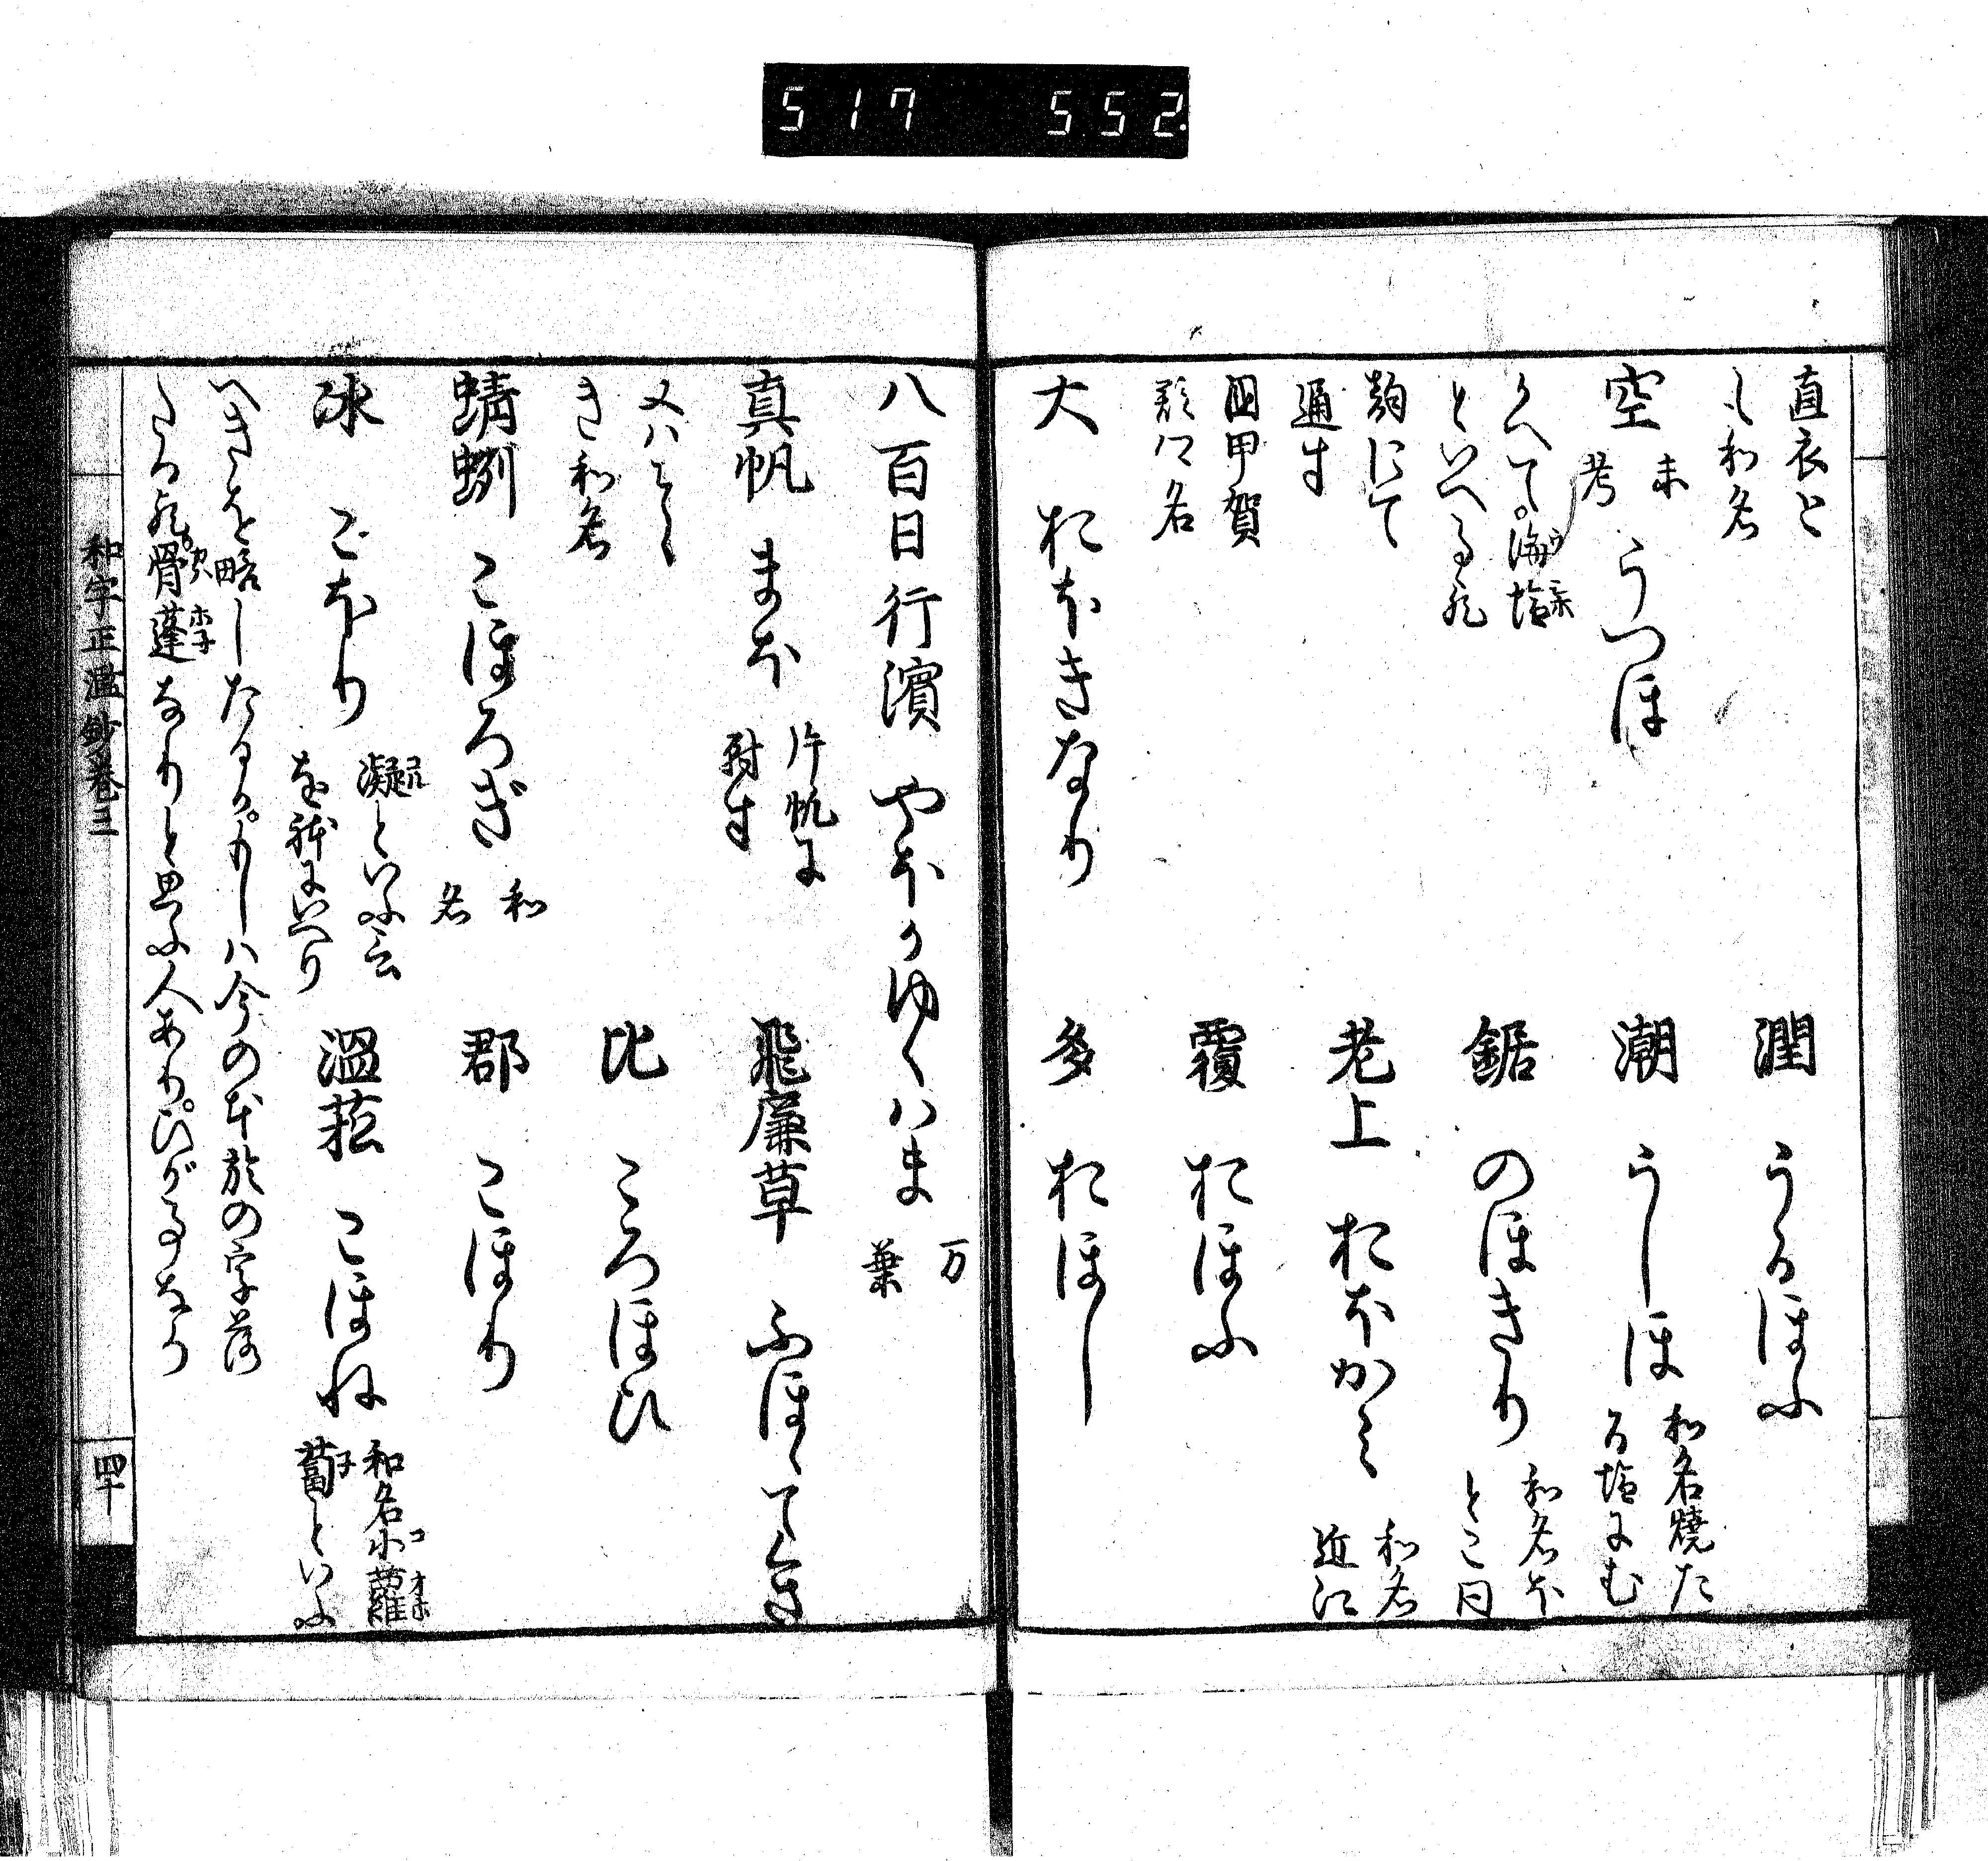 517 552
直衣と
も和名
潤 うるほふ
空 未
考 うつほ
潮 うしほ 和名燒た
る塩にむ
かへて海塩
といへる歟
鋸 のほきり 和名ほ
とこ同
韵にて
通す
老上 おほかミ 和名
近江
國甲賀
郡名
覆 おほふ
大 おほきなり
多 おほし
八百日行濱 やほかゆくはま 万
葉
真帆 まほ 片帆に
対す
飛廉草 ふほゝてくさ
又ハそゝ
き和名
比 ころほひ
蜻蛚 こほろぎ 和
名
郡 こほり
氷 こほり 凝といふ言
を躰にいへり
溫菘 こほね 和名小蘿
葍といふ
へきを略したるか。もしハ今の本於の字落
たる歟。骨蓬なりと思ふ人あり。ひがことなり
和字正濫鈔卷三
四十